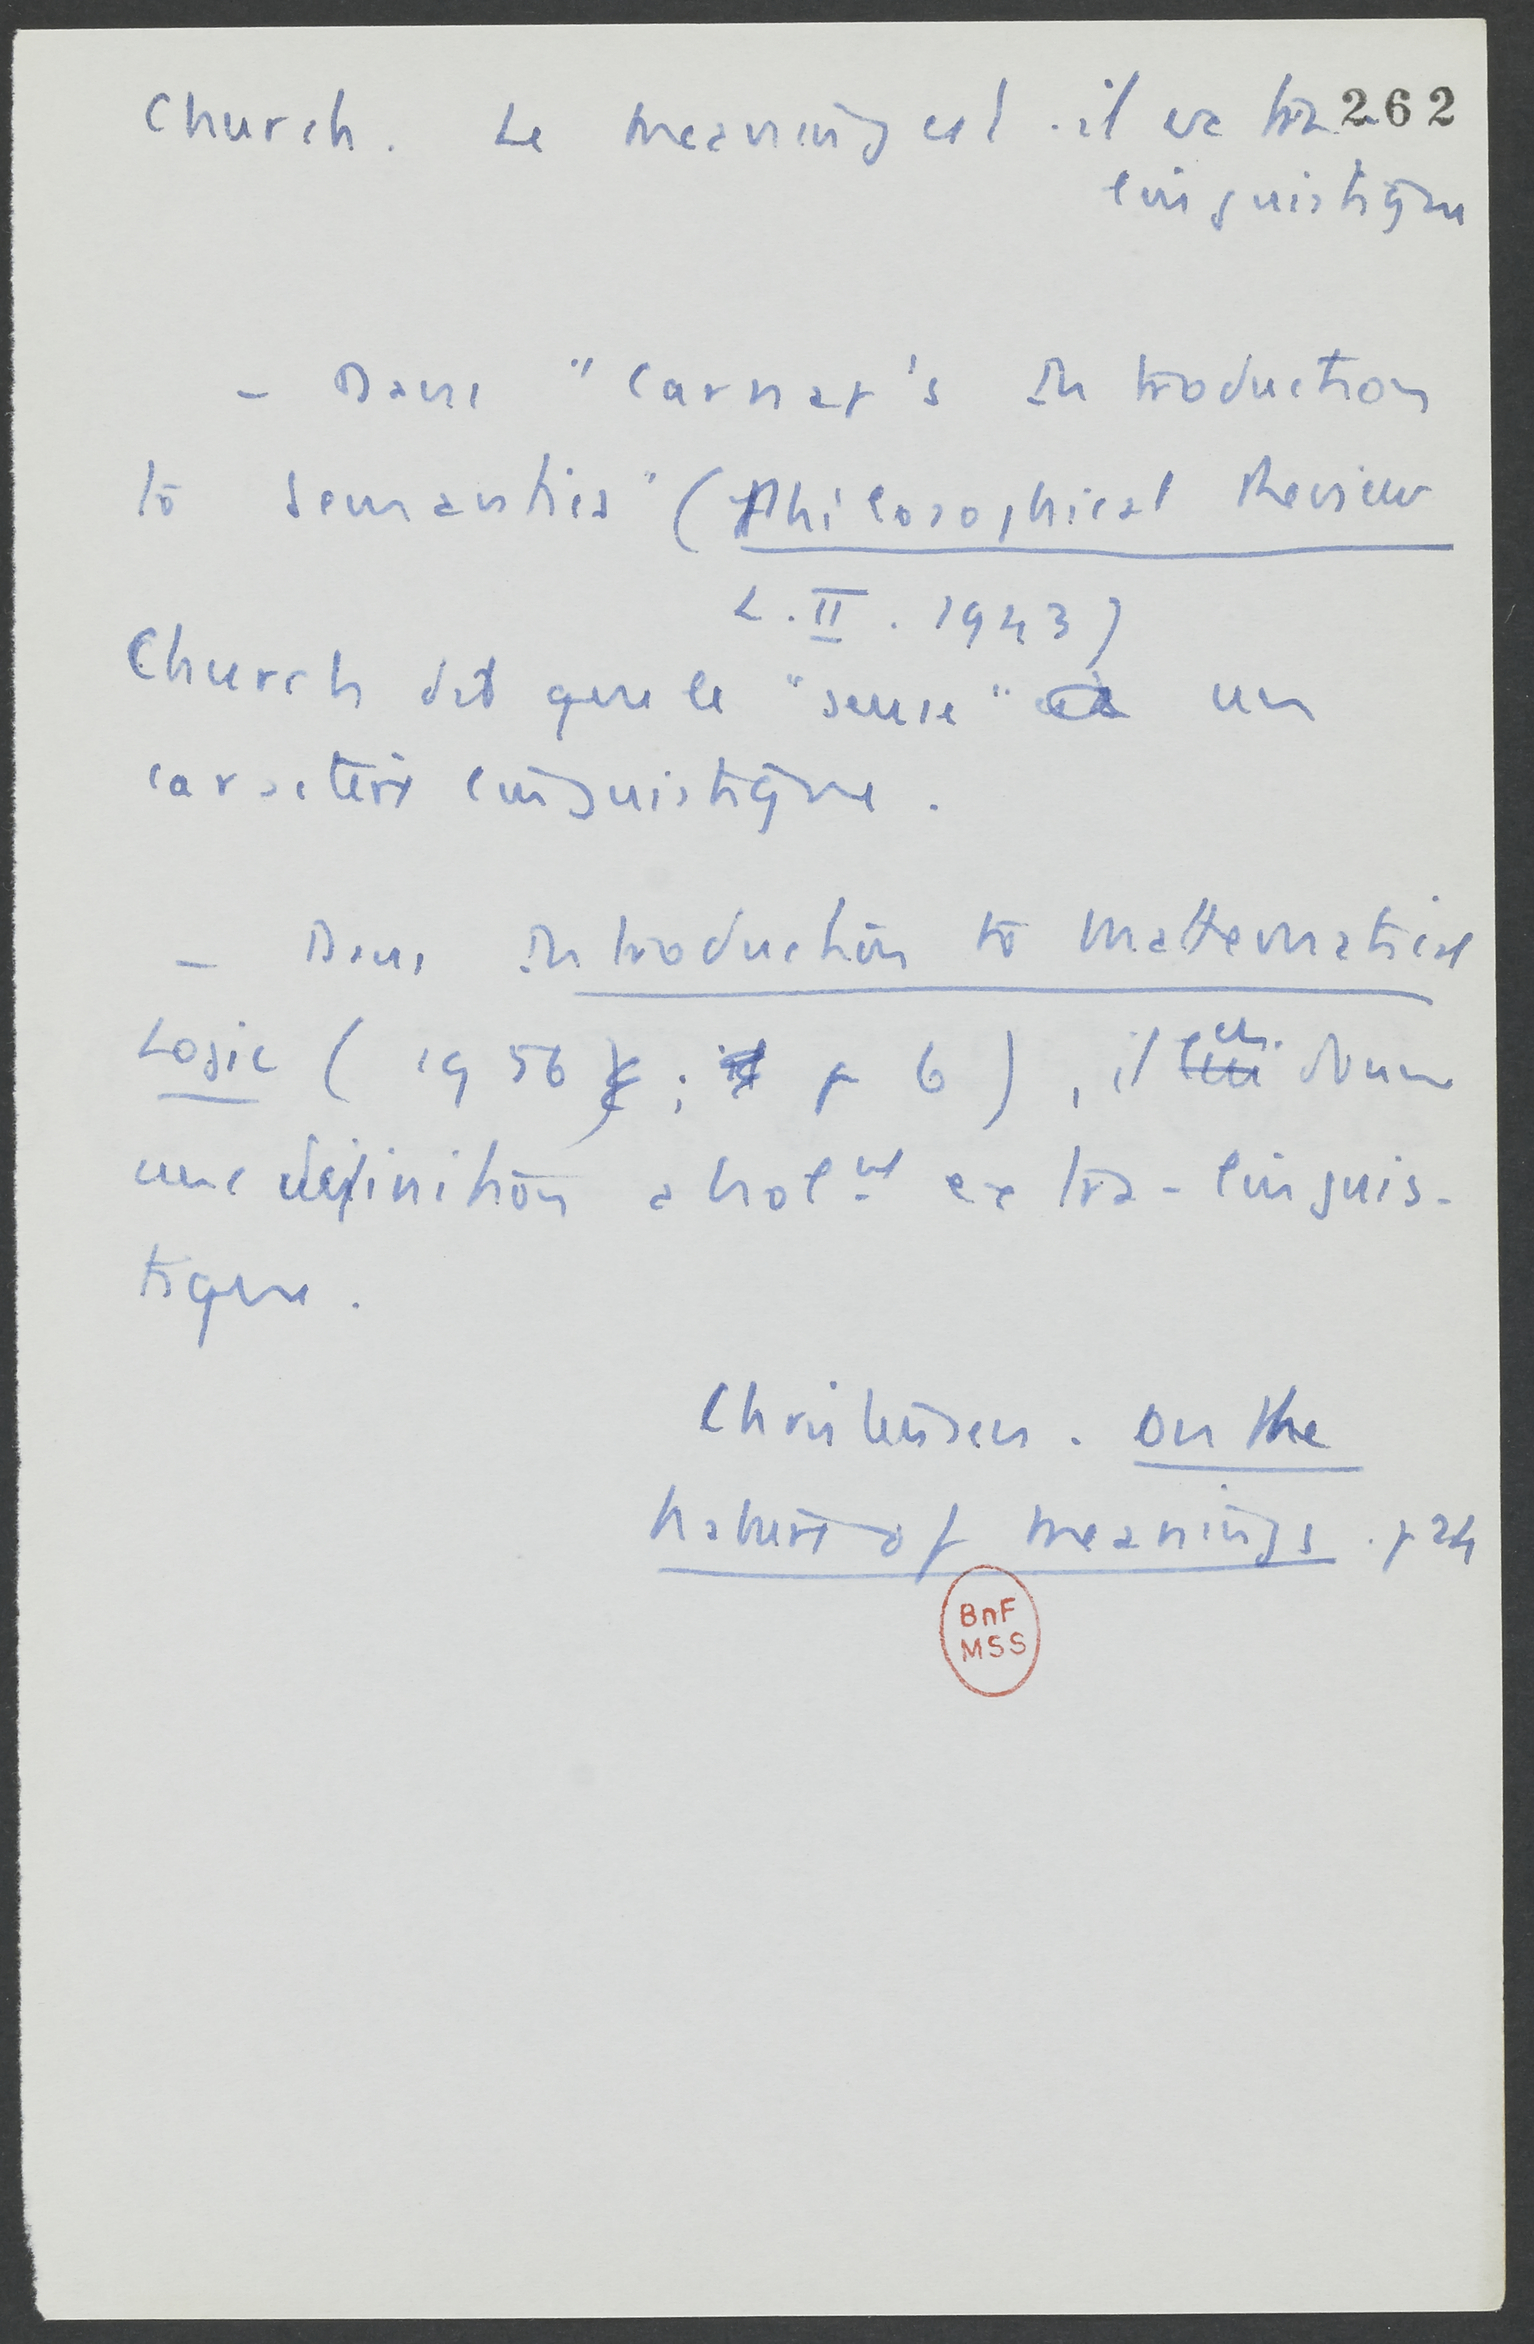 262
Church. Le meaning est-il extra
linguistique
- Dans "Carnap's Introduction
to Semantics" (Philosophical Review
L. II. 1943)
Church dit que le "sense" a un
caractère linguistique.
- Dans Introduction to Mathematical
Logic (1956 ; p 6), il en donne
une définition absolnt extra-linguis-
tique.
Christensen. On the
Nature of meanings. p 24
BnF
MSS